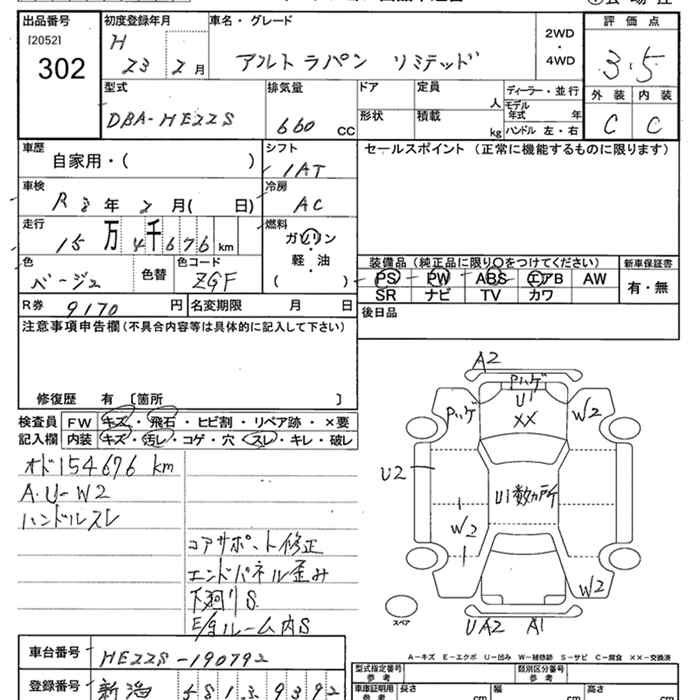 出品番号
[2052]
302
初度登録年月
H
23 2月
車名・グレード
アルト ラパン リミテッド
2WD
・
4WD
評価点
3.5
外装 内装
C C
型式
DBA-HE22S
排気量
660 CC
ドア
形状
定員
人
積載
kg
ディーラー・並行
モデル年式 年
ハンドル 左・右
車歴
自家用・( )
シフト
IAT
セールスポイント (正常に機能するものに限ります)
車検
R 8 年 2 月( 日)
冷房
AC
走行
15 万 4 千 6 7 6 km
燃料
ガソリン
・
軽・油
( )
色
ベージュ
色替
色コード
ZGF
装備品 (純正品に限り○をつけてください)
PS PW ABS エアB AW
SR ナビ TV カワ
新車保証書
有・無
R券 9170 円
名変期限 月 日
後日品
注意事項申告欄 (不具合内容等は具体的に記入して下さい)
修復歴 有 〔箇所 〕
検査員
記入欄
FW キズ・飛石・ヒビ割・リペア跡・×要
内装 キズ・汚レ・コゲ・穴・スレ・キレ・破レ
オド154676 km
A・U-W2
ハンドルスレ
コアサポート修正
エンドパネル歪み
下廻りS
E/gルーム内S
A2
Pハゲ
U1
XX
Pハゲ
W2
U2
U1数ヵ所
W2
W2
UA2 A1
スペア
A-キズ E-エクボ U-凹み W-補修跡 S-サビ C-腐食 ××-交換済
車台番号 HE22S-190792
登録番号 新潟 581 み 9392
型式指定番号
参考
類別区分番号
参考
車庫証明用
参考
長さ cm
幅 cm
高さ cm